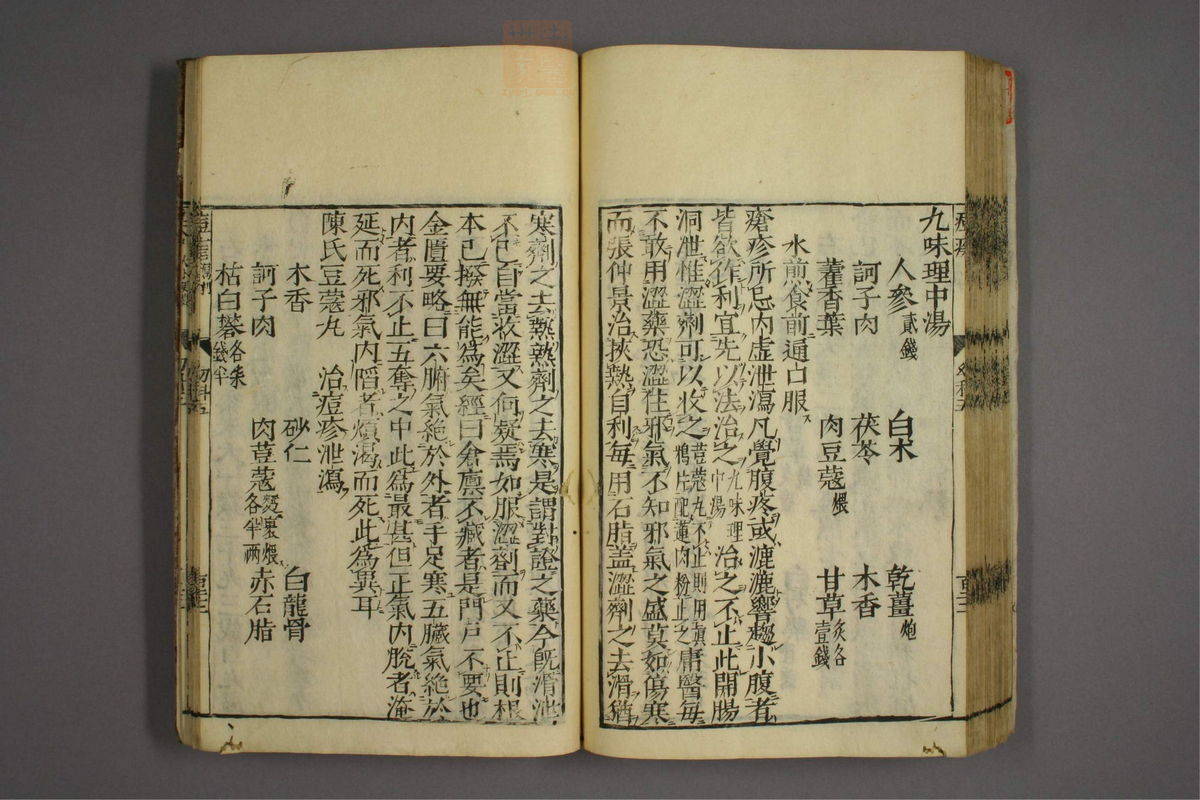 九味理中湯
人參貳錢 白朮 乾薑炮
訶子肉 茯苓 木香
藿香葉 肉豆蔻煨 甘草炙各壹錢
水煎食前通口服
瘡疹所忌內虛泄瀉凡覺腹疼或漉漉響趨小腹者
皆欲作利宜先以法治之九味理中湯治之不止此開腸
洞泄惟澀劑可以收之荳蔻丸不止則用眞鴉片配蓮肉粉止之庸醫每
不敢用澀藥恐澀住邪氣不知邪氣之盛莫如傷寒
而張仲景治挾熱自利每用石脂蓋澀劑之去滑猶
寒劑之去熱熱劑之去寒是謂對證之藥今旣滑泄
不已自當收澀又何疑焉如服澀劑而又不止則根
本已撥無能爲矣經曰倉廪不藏者是門戸不要也
金匱要略曰六腑氣絶於外者手足寒五臟氣絶於
內者利不止五奪之中此爲最甚但正氣內脫者淹
延而死邪氣內陷者煩渴而死此爲異耳
陳氏豆蔻丸 治痘疹泄瀉
木香 砂仁 白龍骨
訶子肉 肉荳蔻麫裹煨各半兩 赤石脂
枯白礬各柒錢半